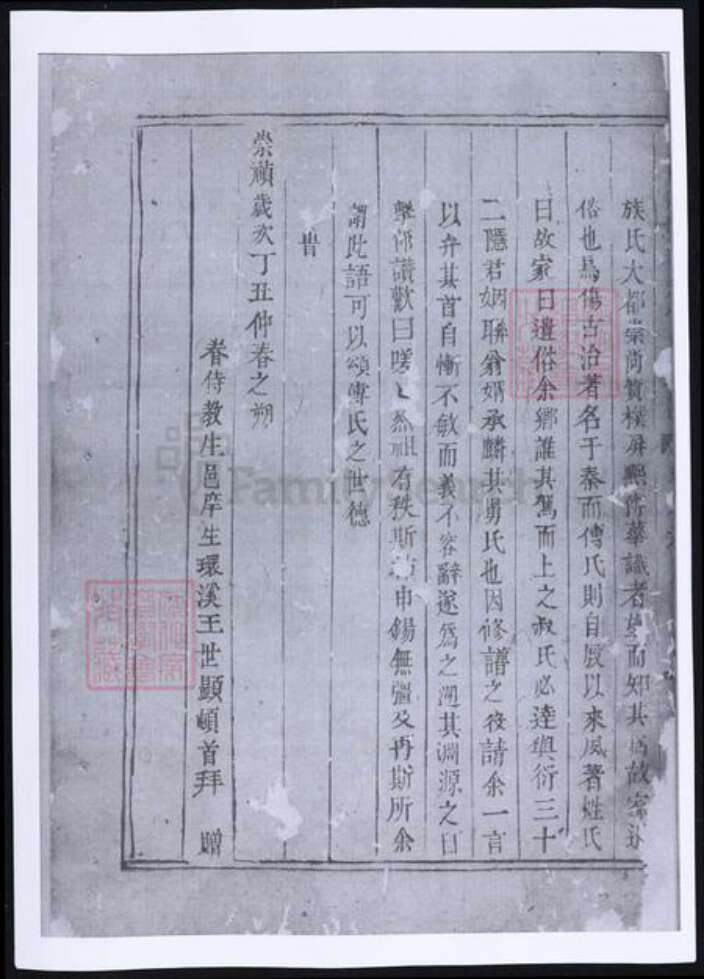 族氏大都崇尚質樸屏黜浮華識者望而知其爲故家
俗也烏傷古治著名于秦而傅氏則自厥以來風著姓氏
曰故家曰遺俗余鄉誰其駕而上之叔氏必達與衍三十
二隱君姻聯翁婿承麟其舅氏也因修譜之役請余一言
以弁其首自慚不敏而義不容辭遂爲之遡其淵源之曰
擊節讚歎曰嗟嗟烈祖有秩斯祜申錫無疆及再斯所余
謂此語可以頌傅氏之世德
旹
崇禎歲次丁丑仲春之朔
眷侍教生邑庠生環溪王世顯頓首拜 贈
FamilySearch